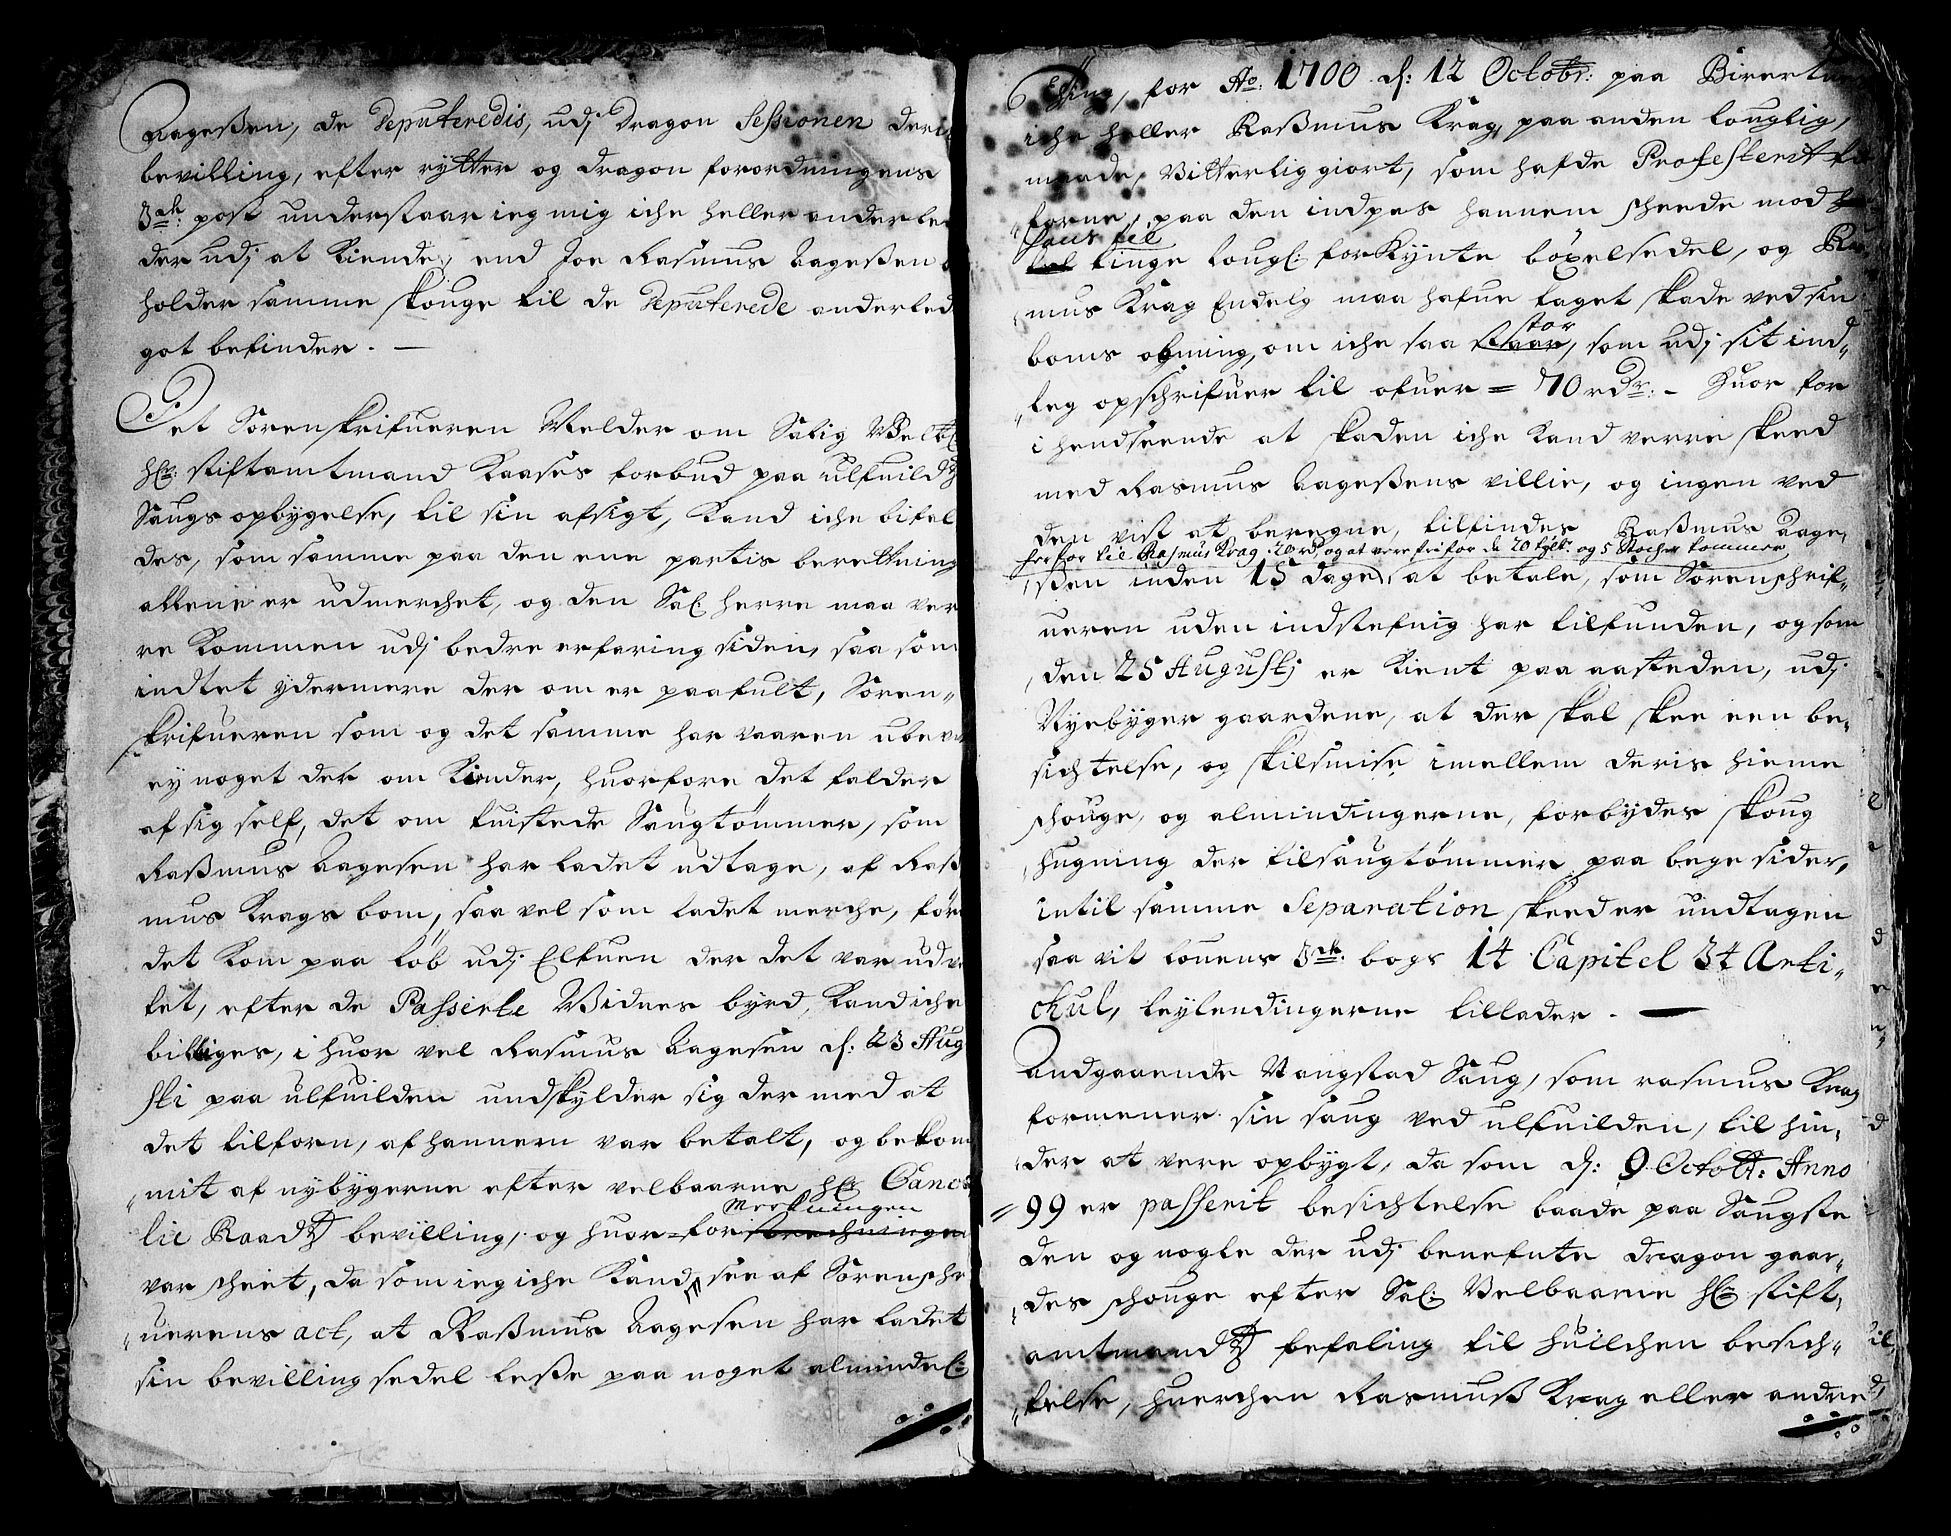 Aagesßen, de Deputeredis, udj Dragon Sessionen deris
bevilling, efter rytter og dragon forordningens
3die: post understaar ieg mig iche heller anderle
der udj at Kiende, end Joe Rasmus Aagesßen
holder samme skouge til de Deputerede anderled
got befinder. —
Det Sorenskrifueren Melder om Salig Welb:
Hr: stiftamtmand Kaases forbud paa ulfuilds
Saugs opbygelse, til sin afsigt, Kand iche bifal
des, som samme paa den ene partis berettning
allene er udmerchet, og den Sal: herre maa ver
re Kommen udj bedre erfaring siden, saa som
indtet ydermere der om er paafult, Soren-
skrifueren som og det samme har vaaren ubev
ey noget der om Kiender, huorfore det falder
af sig self, det om tuistede Saugtømmer, som
Rasßmus Aagesen har ladet udtage, af Rasß
mus Krags bom, saa vel som ladet merche, før
det Kom paa løb udj Elfuen der det var udv
let, efter de Passerte Widnes byrd, Kand iche
billiges, i huor vel Rasmus Aagesen d: 23 Aug
sti paa ulfuilden undskylder sig der med at
det tilforn, af hannem var betalt, og bekom
mit af nybygerne efter velbaarne Hr: Cance
lie Raads bevilling, og huor-for Merkningen
var scheet, da som ieg iche Kand see af Sorenschr
uerens act, at Rasßmus Aagesen har ladet
sin bevilling sedel lesße paa noget almindel:
Ting, for Ao: 1700 d: 12 Octobr: paa Birertu
iche heller Rasßmus Krag, paa anden louglig,
maade, Vitterlig giort, som hafde Protesterit
forne, paa den indpas hannem scheede mod
hans til
tinge lougl: forKynte böxelsedel, og Ras
mus Krag Endelig maa hafue taget skade ved sin
boms obning, om iche saa stor, som udj sit ind-
leg opschrifuer til ofuer = 70 rdr: - Huor for
i hendseende at skaden iche Kand verre skeed
med Rasmus Aagesßens villie, og ingen ved
den vist at beregne, tilfindes Rasßmus Aage
herfor til Rasmus Krag 20 rd, og at vere fri for de 20 tylt: og 5 Stocher tømmer
sßen inden 15 dage, at betale, som Sorenschrif-
ueren uden indstefnig har tilfunden, og som
den 25 Augustj er Kient paa aasteden, udj
Nyebyger gaardene, at der skal skee een be-
sichtelse, og skilsmise imellem deris hieme
schouge, og almindingerne, forbydes skoug
hugning der til saugtømmer paa bege sider,
intil samme Separation skeed er undtagen
saa vit louens 3die: bogs 14 Capitel 34 Arti-
chul, leylendingerne tillader. —
Andgaaende Vangstad Saug, som rasmus Krag
formener sin saug ved ulfuilden, til hin-
der at vere opbygt, da som d: 9 Octobr: Anno
=99 er passerit besichtelse baade paa Saugste
den og nogle der udj benefnte dragon gaar-
des schouge efter Sal: Velbaarne Hr: stift-
amtmands befaling til huilchen besich-
telse, huerchen Rasmusß Krag eller andre